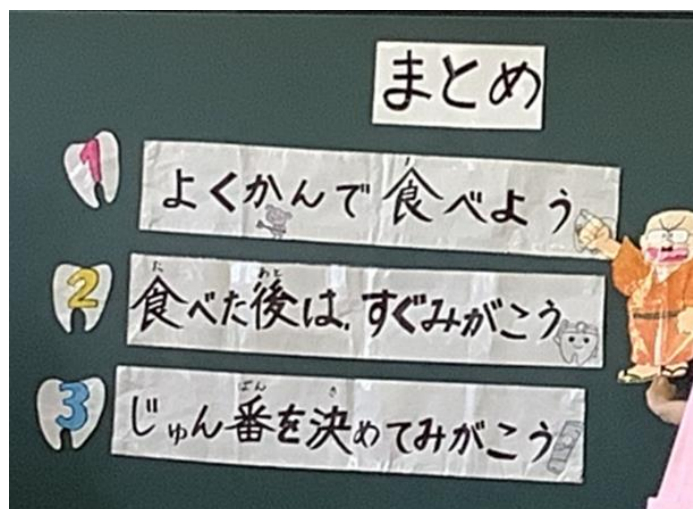 まとめ
1 よくかんで食べよう
2 食べた後は、すぐみがこう
3 じゅん番を決めてみがこう